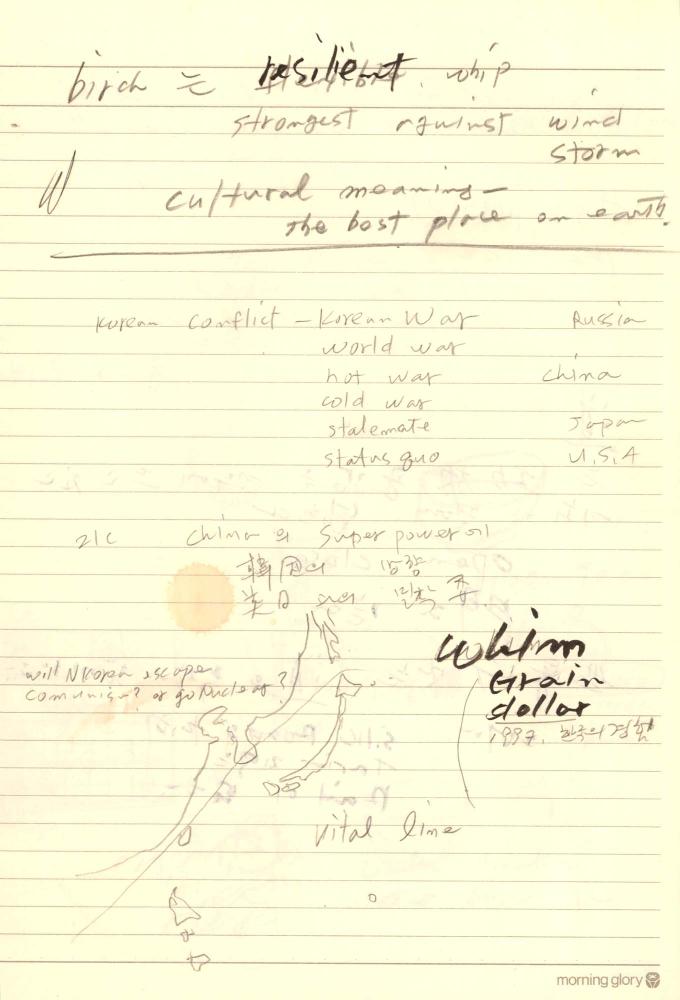 birch 는 resilient whip
strongest against wind
storm
cultural meaning —
the best place on earth.
Korean conflict — Korean War Russia
world war
hot war China
cold war
stalemate Japan
status quo U.S.A
21C China 의 Super power에
韓国의
美日 과의 밀착
Whim
Grain
dollar
1997. 한국의 경험
will N Korea escape
comunism? or go Nuclear?
vital line
morning glory